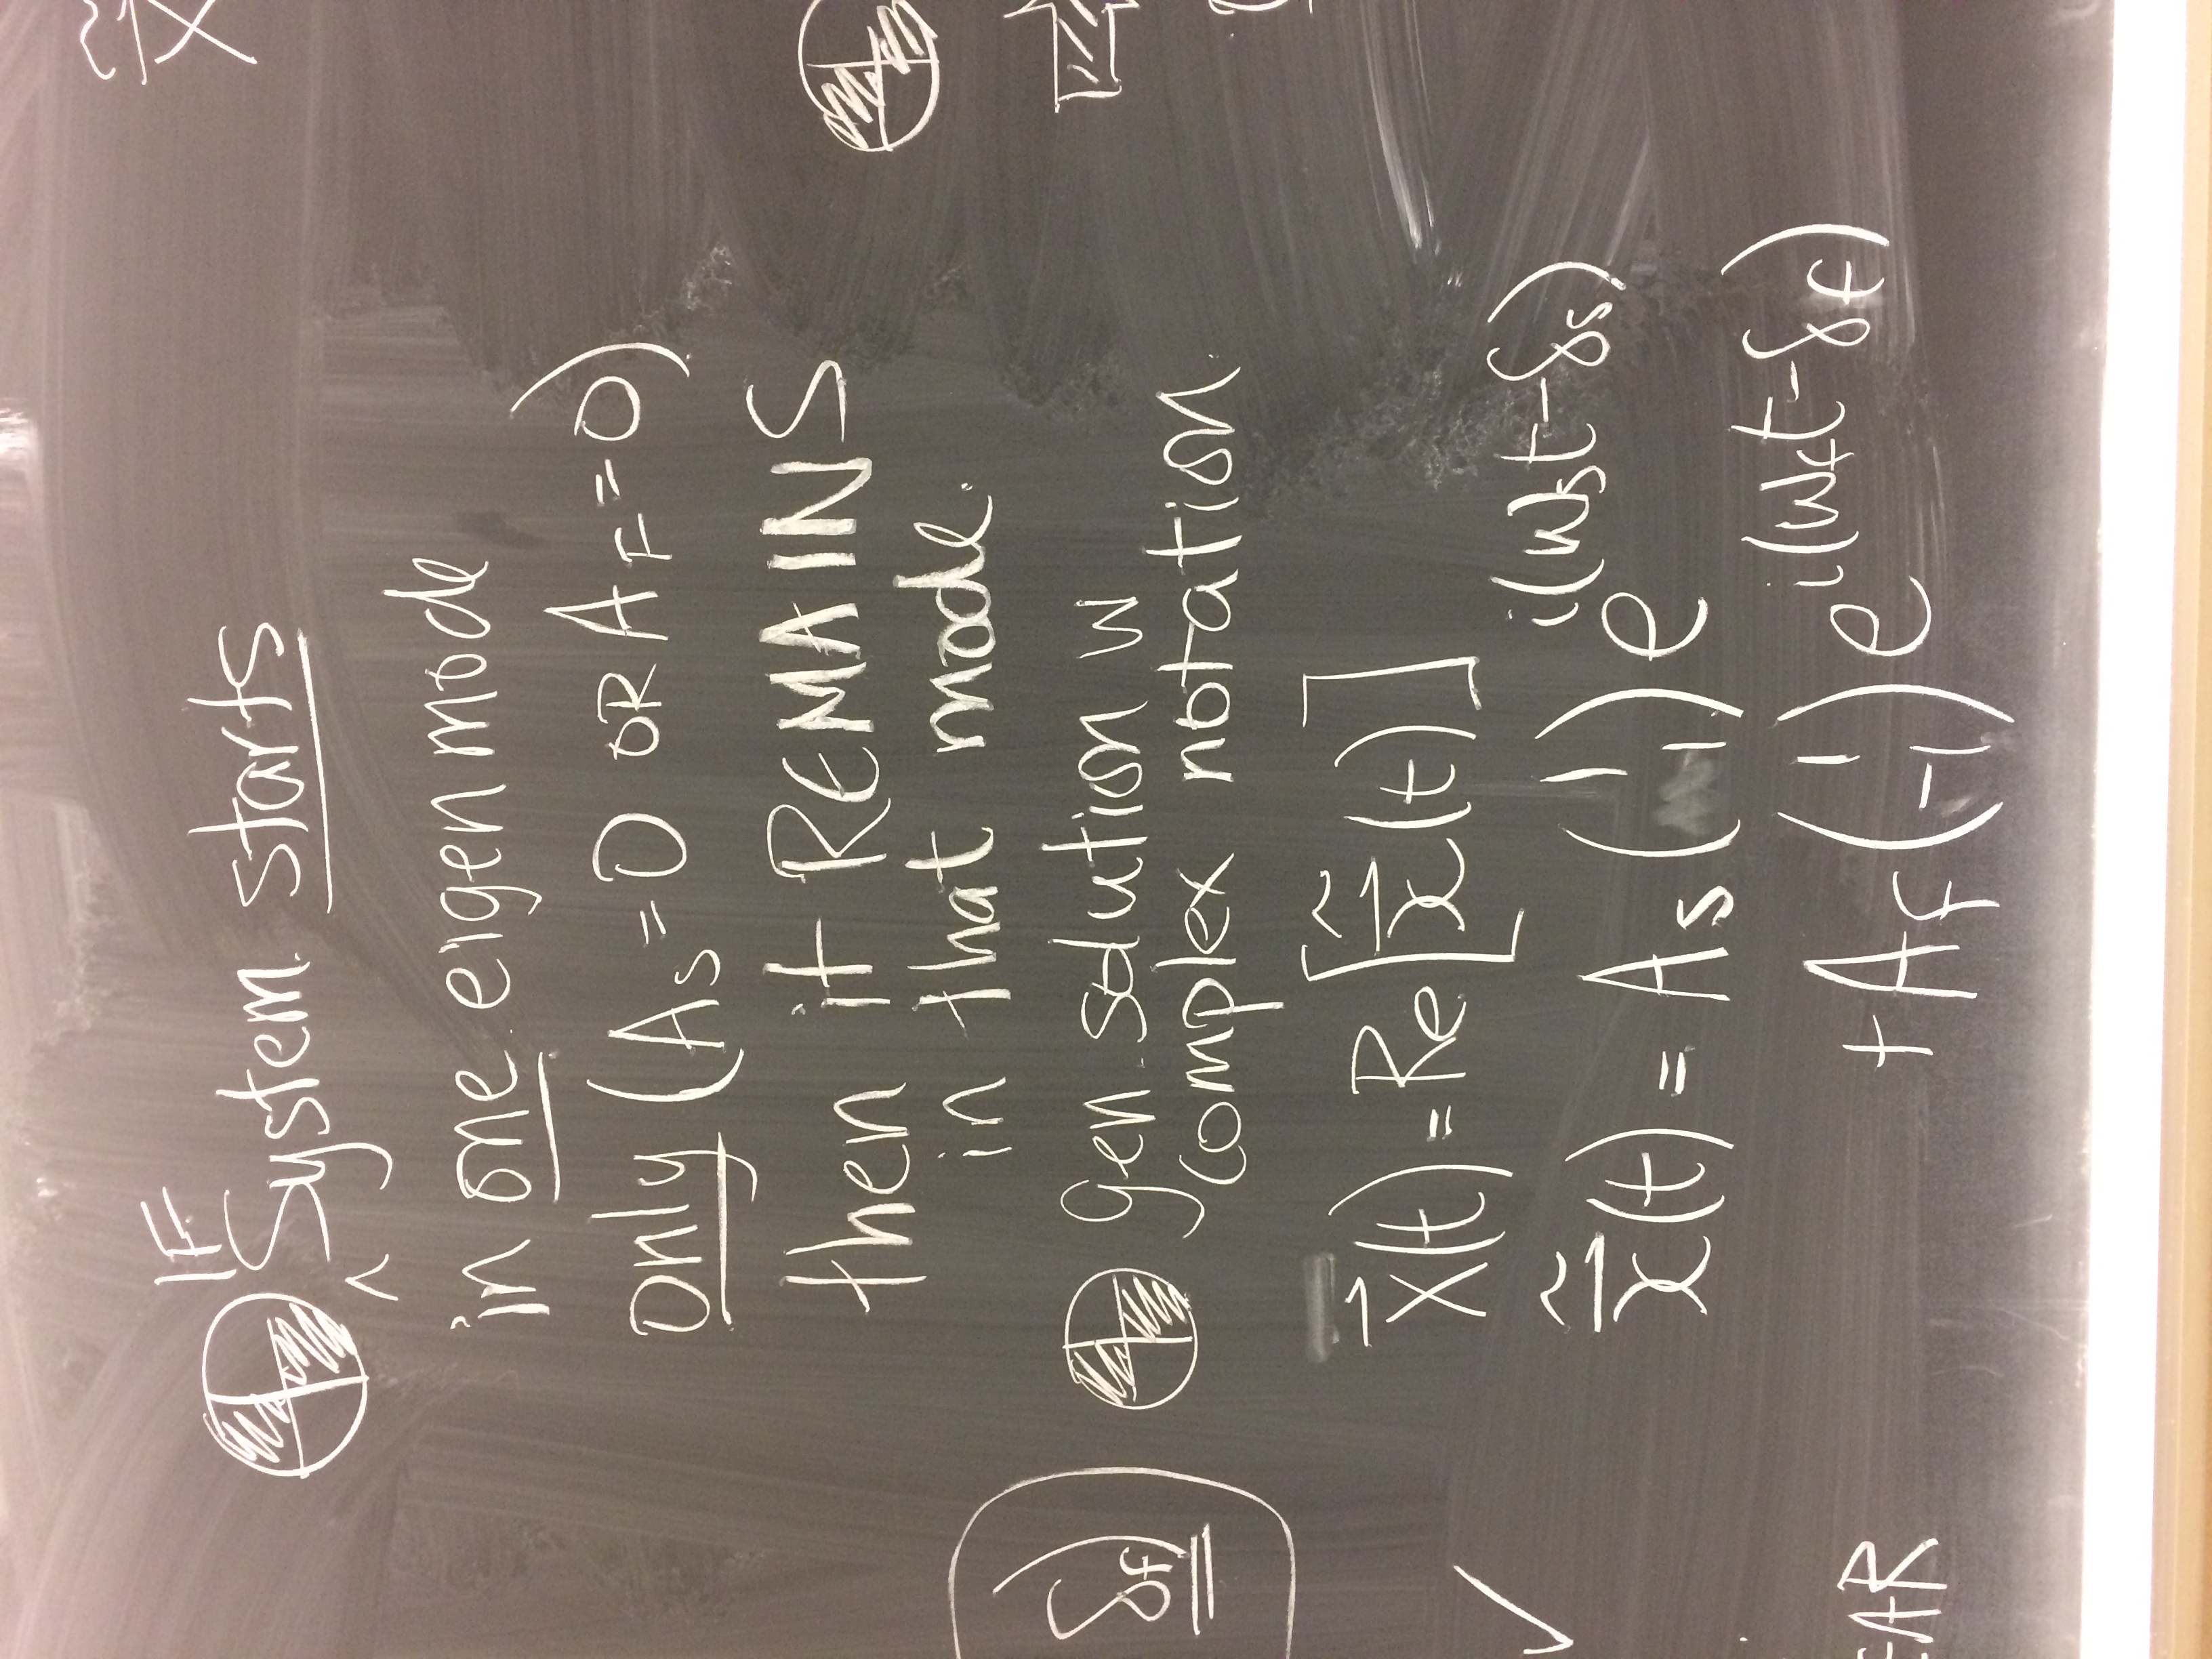 IF
System starts
in one eigenmode
only (As = 0 OR AF = 0)
then it REMAINS
in that mode.
gen. solution w
complex notation.
x⃗(t) = Re[x̃⃗(t)]
x̃⃗(t) = As (1 1) e^i(ωst-δs)
+ Af (1 -1) e^i(ωft-δf)
δf)
EAR